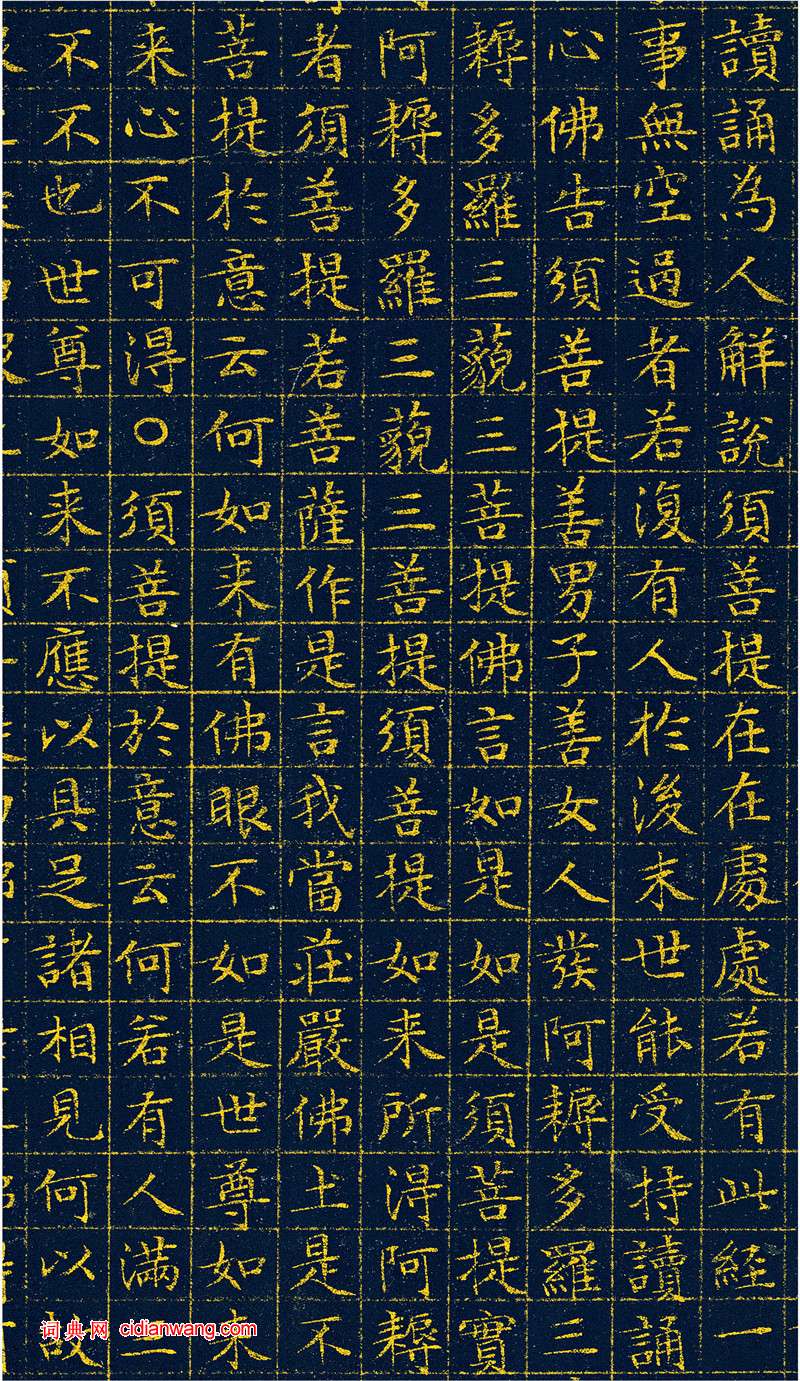 讀誦為人解說須菩提在在處處若有此經一
事無空過者若復有人於後末世能受持讀誦
心佛告須菩提善男子善女人發阿耨多羅三
耨多羅三藐三菩提佛言如是如是須菩提實
阿耨多羅三藐三菩提須菩提如来所得阿耨
者須菩提若菩薩作是言我當莊嚴佛土是不
菩提於意云何如来有佛眼不如是世尊如来
来心不可得○須菩提於意云何若有人滿三
不不也世尊如来不應以具足諸相見何以故
词典网 cidianwang.com